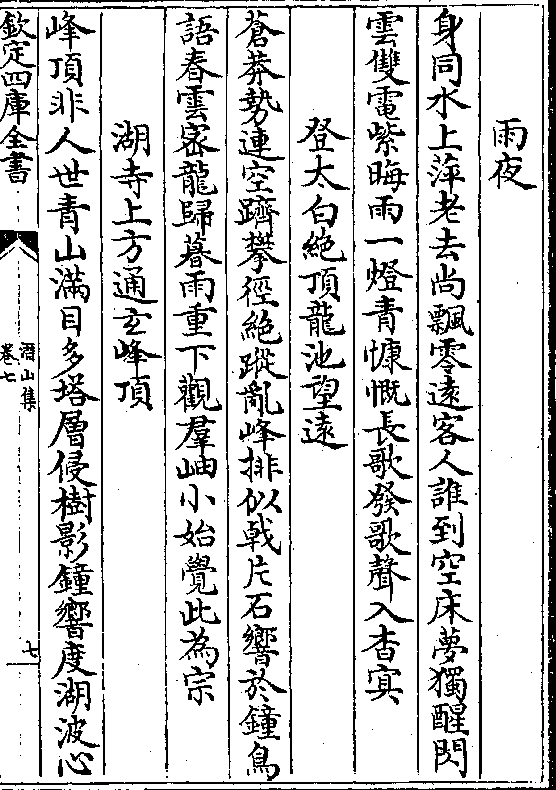 雨夜
身同水上萍老去尚飄零遠客人誰到空床夢獨醒閃
雲雙電紫晦雨一燈青慷慨長歌發歌聲入杳㝠
登太白絶頂龍池望遠
蒼莽勢連空躋攀徑絶蹤亂峰排似戟片石響於鐘鳥
語春雲密龍歸暮雨重下觀羣岫小始覺此為宗
湖寺上方通𤣥峰頂
峰頂非人世青山滿目多塔層侵樹影鐘響度湖波心
欽定四庫全書
潛山集
卷七
七